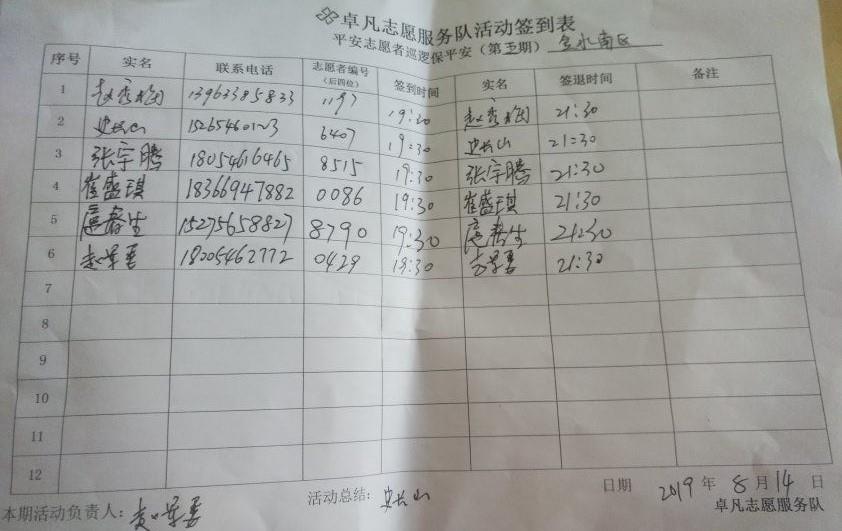 卓凡志愿服务队活动签到表
平安志愿者巡逻保平安（第五期）金水南区
序号 实名 联系电话 志愿者编号（后四位） 签到时间 实名 签退时间 备注
1 赵秀梅 13963385833 1197 19:30 赵秀梅 21:30
2 史长山 6407 19:30 史长山 21:30
3 张宇腾 18054616465 8515 19:30 张宇腾 21:30
4 崔盛琪 18366947882 0086 19:30 崔盛琪 21:30
5 15275658827 8790 19:30 21:30
6 18205462772 0429 19:30 21:30
7
8
9
10
11
12
本期活动负责人： 活动总结：史长山 日期 2019年8月14日
卓凡志愿服务队